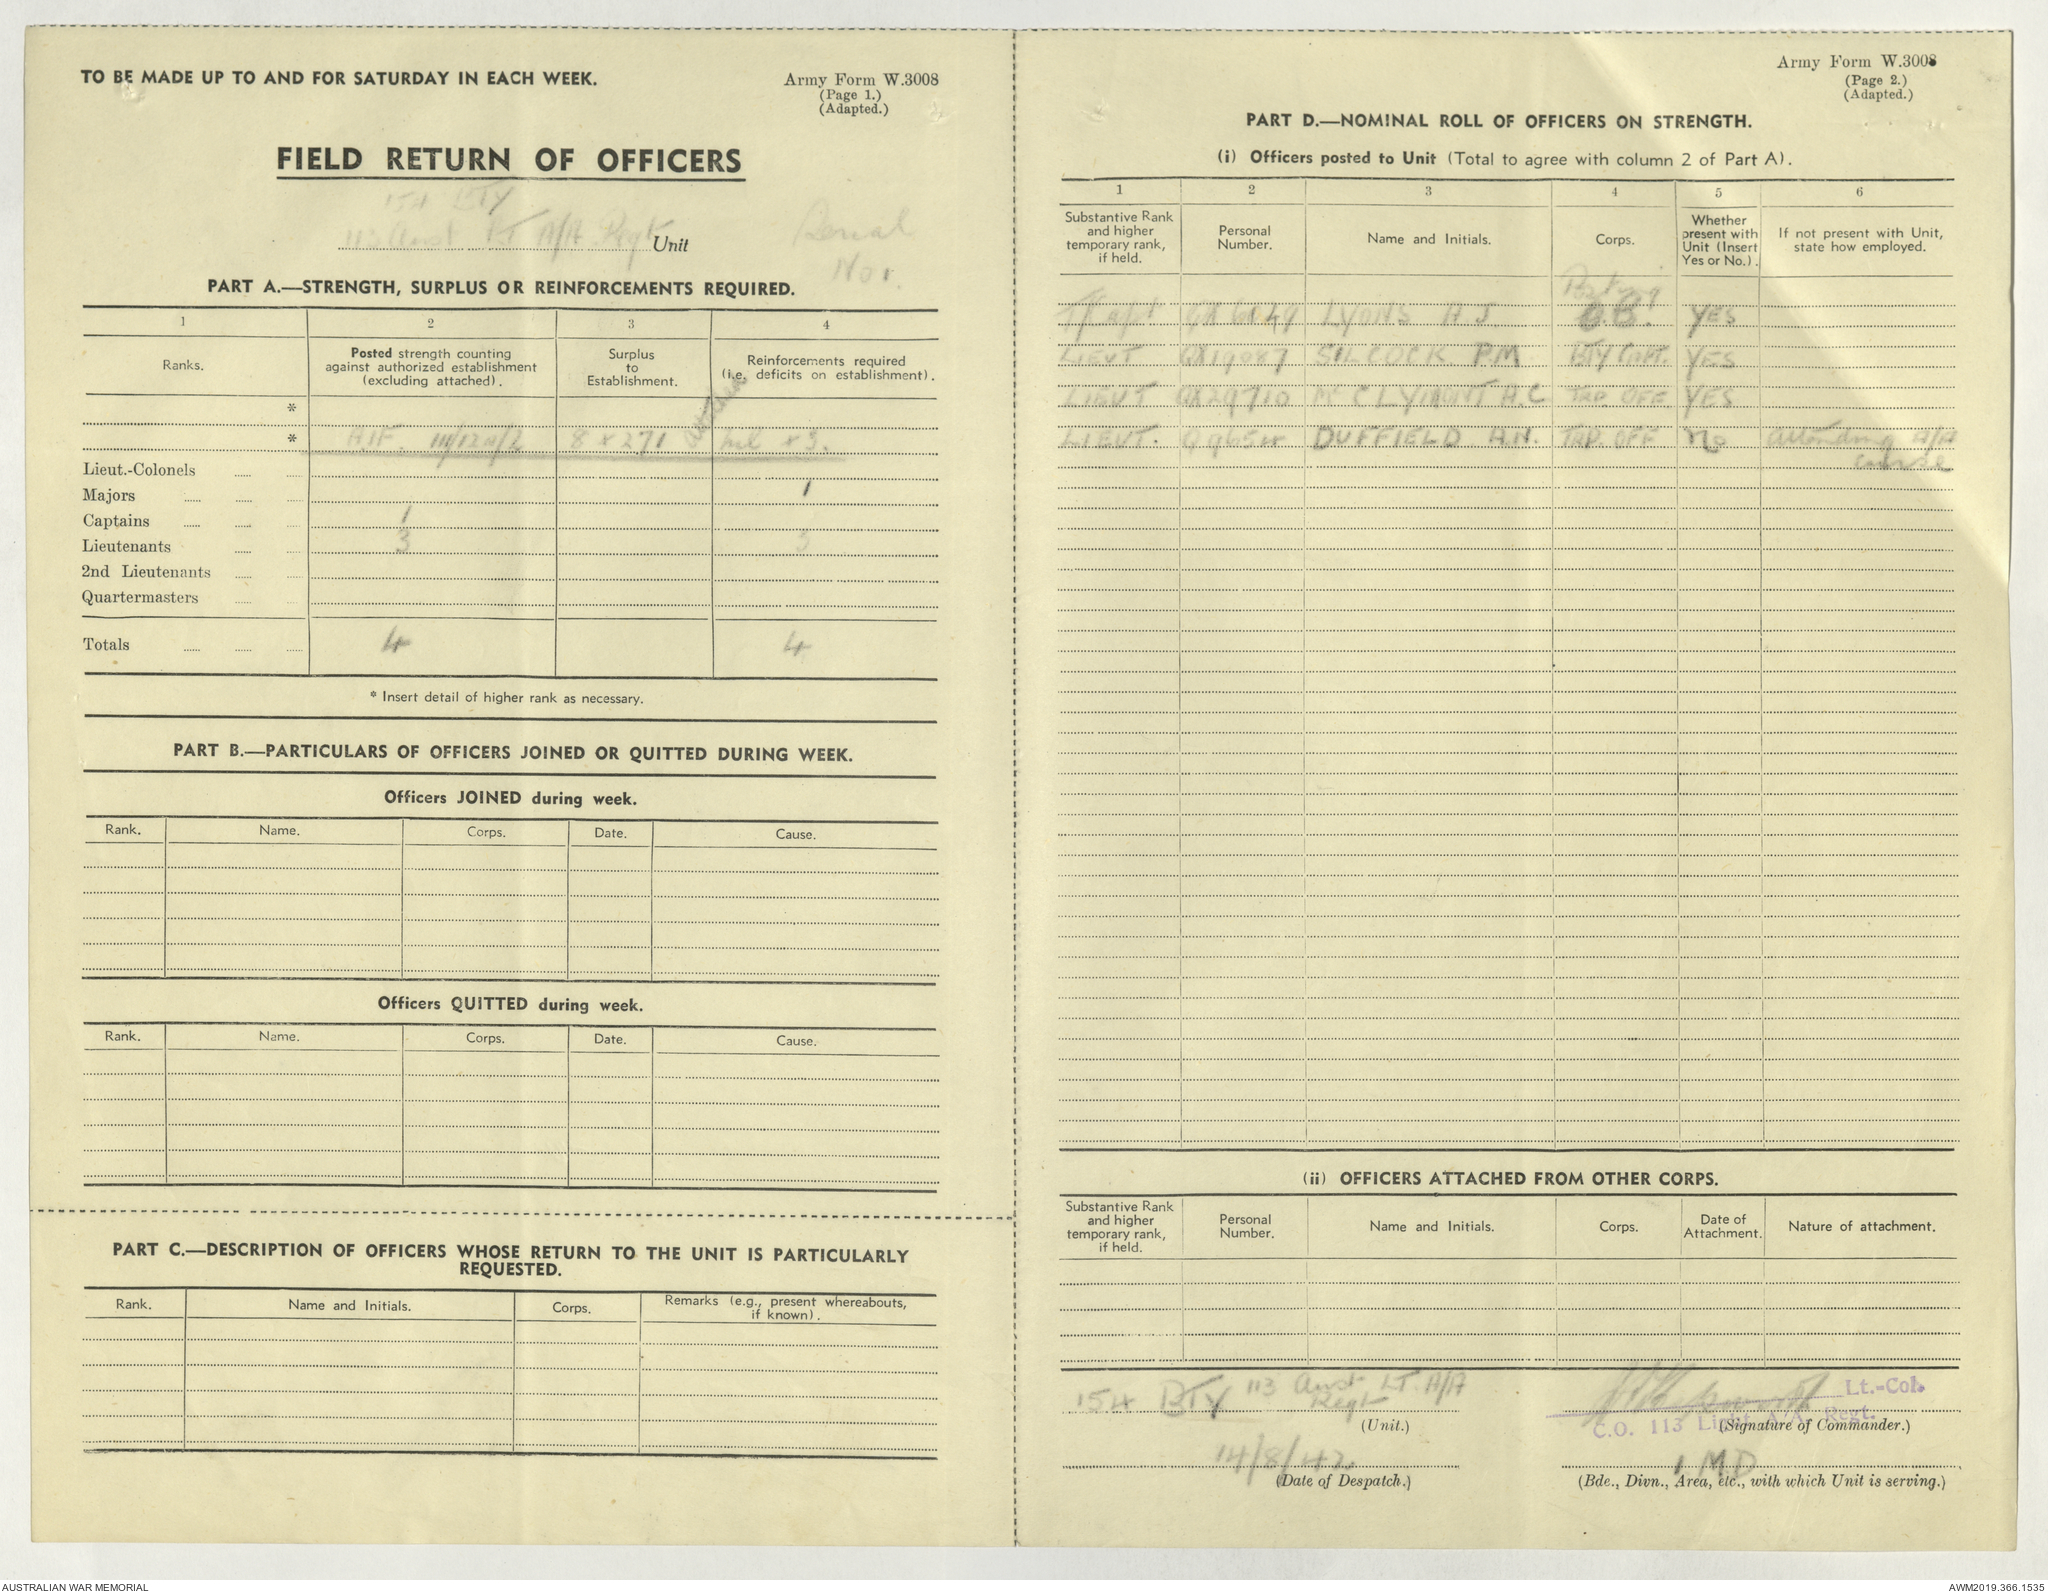 TO BE MADE UP TO AND FOR SATURDAY IN EACH WEEK.
Army Form W.3008
(Page 1.)
(Adapted.)
FIELD RETURN OF OFFICERS
154 BTY
113 Aust LT A/A Regt Unit
Serial
No 1.
PART A.—STRENGTH, SURPLUS OR REINFORCEMENTS REQUIRED.
1 2 3 4
Ranks.
Posted strength counting
against authorized establishment
(excluding attached).
Surplus
to
Establishment.
Reinforcements required
(i.e. deficits on establishment).
*
* AIF. III/12A/2 8 x 271
Lieut.-Colonels
Majors 1
Captains 1
Lieutenants 3 3
2nd Lieutenants
Quartermasters
Totals 4 4
* Insert detail of higher rank as necessary.
PART B.—PARTICULARS OF OFFICERS JOINED OR QUITTED DURING WEEK.
Officers JOINED during week.
Rank. Name. Corps. Date. Cause.
Officers QUITTED during week.
Rank. Name. Corps. Date. Cause.
PART C.—DESCRIPTION OF OFFICERS WHOSE RETURN TO THE UNIT IS PARTICULARLY
REQUESTED.
Rank. Name and Initials. Corps. Remarks (e.g., present whereabouts,
if known).
Army Form W.3008
(Page 2.)
(Adapted.)
PART D.—NOMINAL ROLL OF OFFICERS ON STRENGTH.
(i) Officers posted to Unit (Total to agree with column 2 of Part A).
1 2 3 4 5 6
Substantive Rank
and higher
temporary rank,
if held.
Personal
Number.
Name and Initials.
Corps.
Whether
present with
Unit (Insert
Yes or No.).
If not present with Unit,
state how employed.
T/Capt QX6149 LYONS A J. YES
LIEUT QX19087 SILCOCK P.M BTY CAPT. YES
LIEUT QX29710 McCLYMONT A.C TRP OFF YES
LIEUT. Q9654 DUFFIELD A.N. TRP. OFF No attending A/A
course
(ii) OFFICERS ATTACHED FROM OTHER CORPS.
Substantive Rank
and higher
temporary rank,
if held.
Personal
Number.
Name and Initials.
Corps.
Date of
Attachment.
Nature of attachment.
154 BTY 113 Aust LT A/A
Regt
(Unit.)
Lt.-Col.
C.O. 113 Light A/A. Regt.
(Signature of Commander.)
14/8/42
(Date of Despatch.)
1 MD
(Bde., Divn., Area, etc., with which Unit is serving.)
AUSTRALIAN WAR MEMORIAL
AWM2019.366.1535